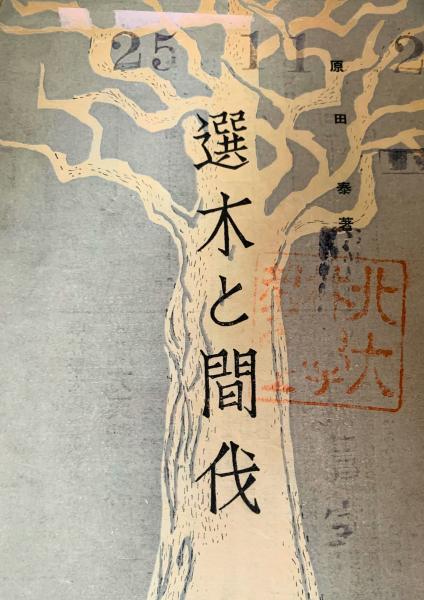 25 11 2
原田泰著
選木と間伐
北大